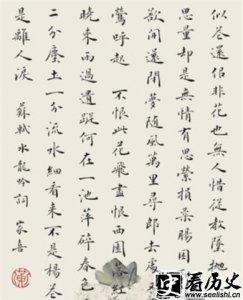 似花還佀非花也無人惜從教墜拋
思量却是無情有思縈損柔腸
欲開還閉夢隨風萬里尋郎去處
鶯呼起不恨此花飛盡恨西園紅
曉來雨過遺蹤何在一池萍碎春色
二分塵土一分流水細看來不是楊花
是離人淚 蘇軾水龍吟詞 家喜
看历史
www.seelishi.cn